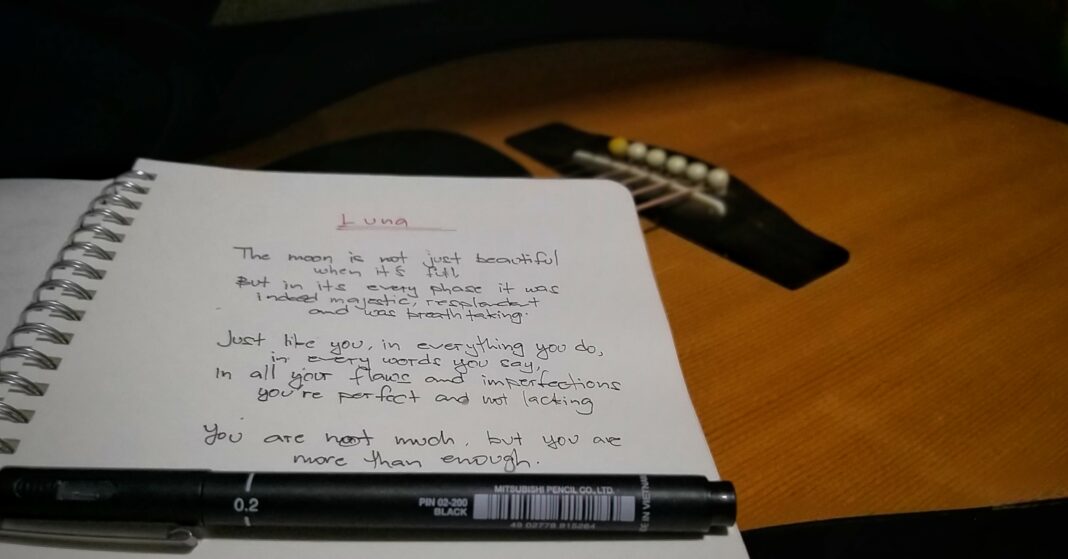 Luna
The moon is not just beautiful
when it's full
But in its every phase it was
indeed majestic, resplendent
and was breath taking.
Just like you, in everything you do,
in every words you say,
In all your flaws and imperfections
you're perfect and not lacking
You are not much, but you are
more than enough.
0.2
PIN 02-200
BLACK
MITSUBISHI PENCIL CO., LTD.
MADE IN VIETNAM